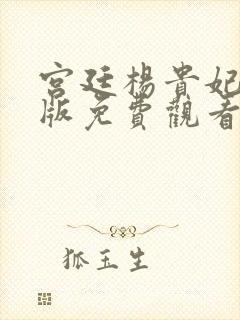 宮廷楊貴妃
版免費觀看
狐玉生